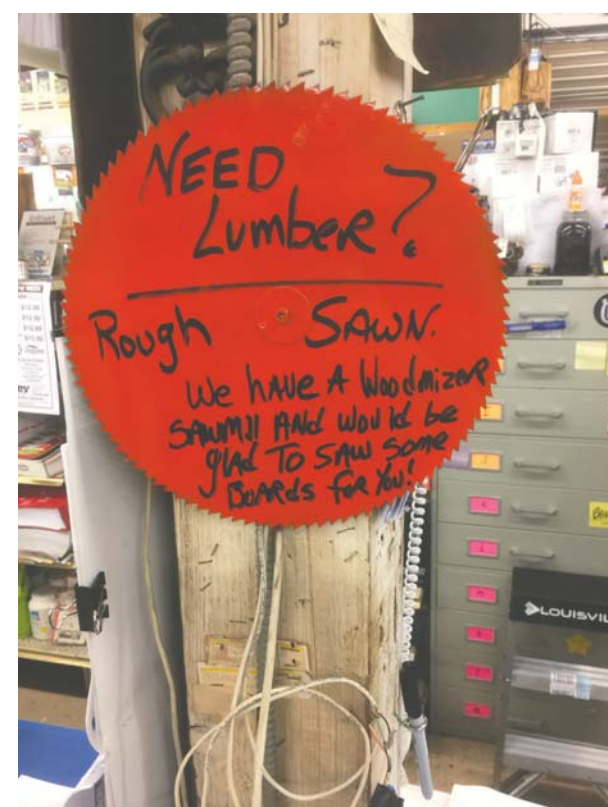 NEED
Lumber?
Rough SAWN.
We have A Woodmizer
SAWMill ANd would be
glad To SAW Some
BoARds foR You!
LOUISVIL